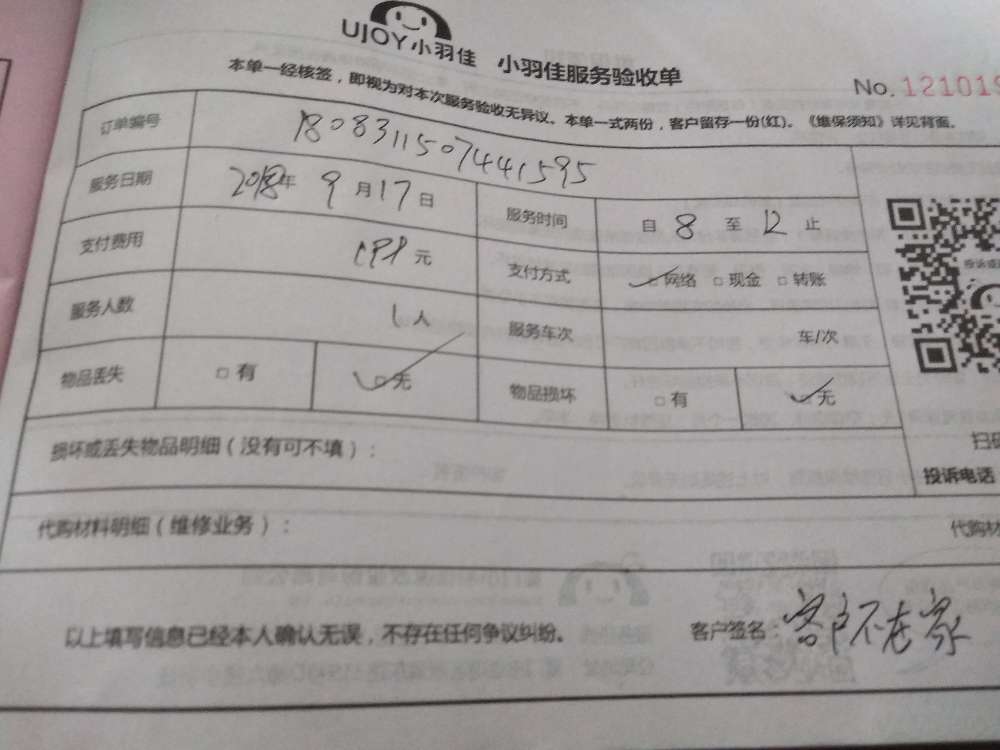 UJOY小羽佳 小羽佳服务验收单
No. 121019
本单一经核签，即视为对本次服务验收无异议。本单一式两份，客户留存一份(红)。《维保须知》详见背面。
订单编号 180831150744159​5
服务日期 2018年 9月17日 服务时间 自 8 至 12 止
支付费用 元 支付方式 □网络 □现金 □转账
服务人数 1人 服务车次 车/次
物品丢失 □有 □无 物品损坏 □有 □无
损坏或丢失物品明细（没有可不填）：
扫码
投诉电话
代购材料明细（维修业务）： 代购材
以上填写信息已经本人确认无误，不存在任何争议纠纷。 客户签名：客户不在家